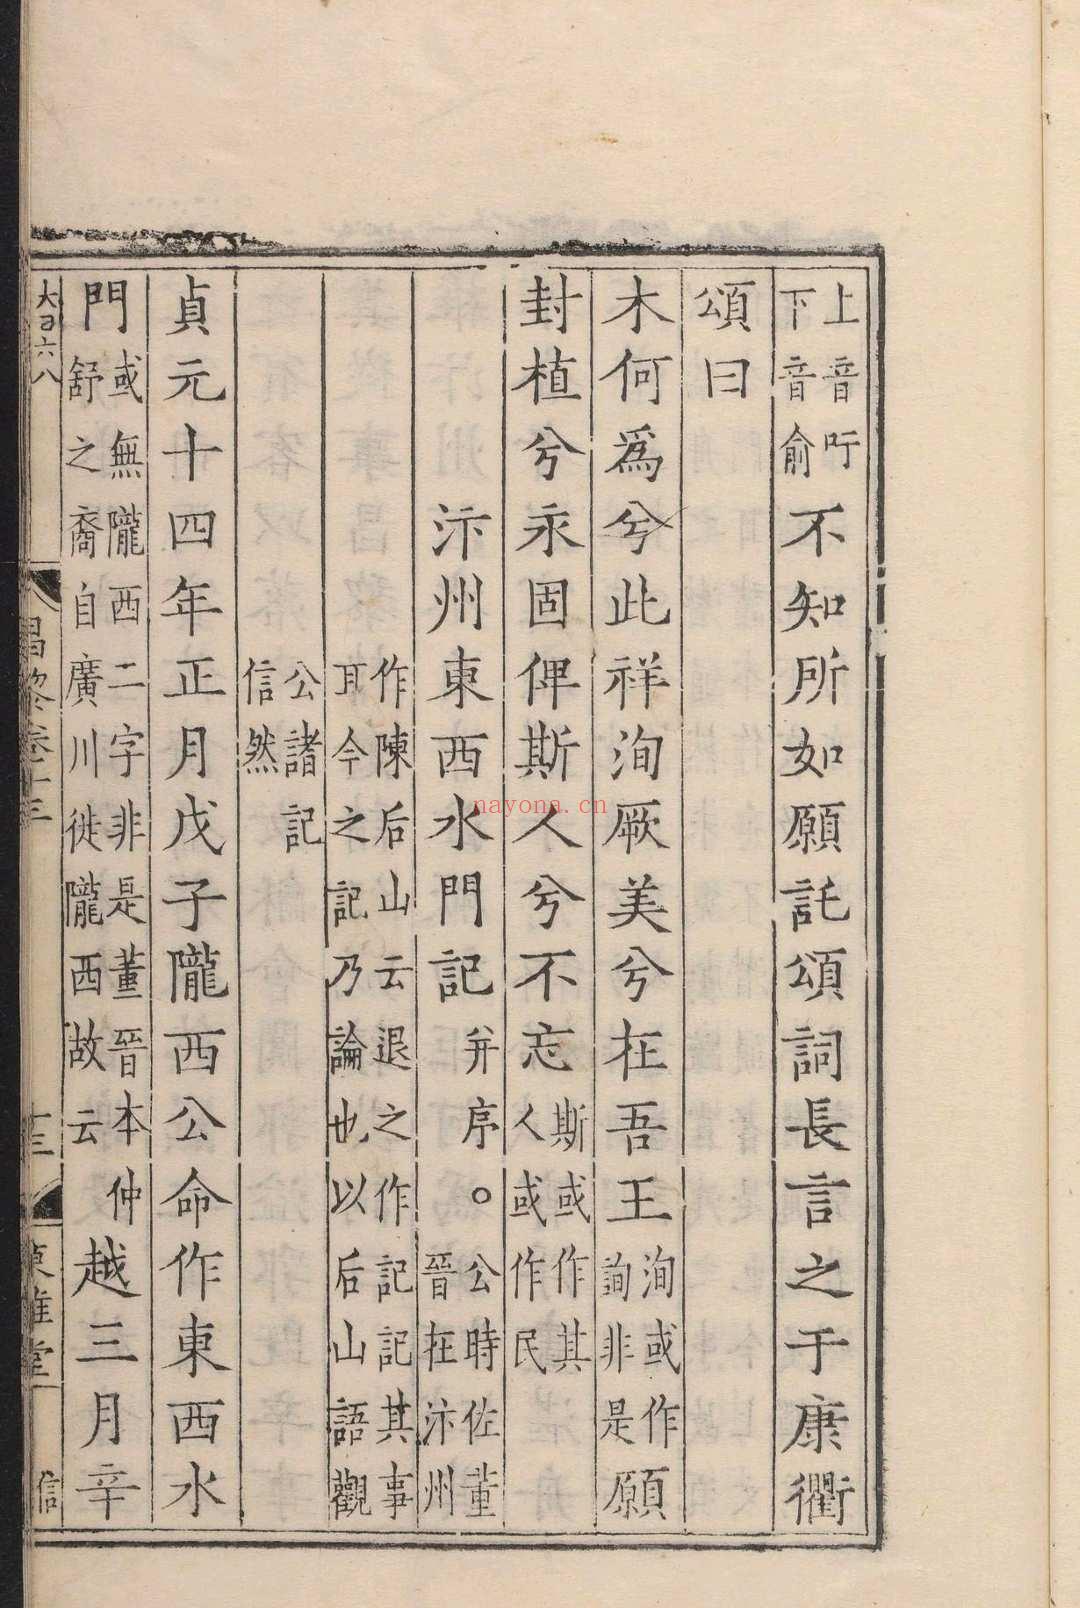 上音吁下音俞不知所如願託頌詞長言之于康衢
頌曰
木何為兮此祥洵厥美兮在吾王洵或作詢非是願
封植兮永固俾斯人兮不忘斯或作其人或作民
汴州東西水門記并序。公時佐董晉在汴州
作陳后山云退之作記記其事耳今之記乃論也以后山語觀
公諸記信然
貞元十四年正月戊子隴西公命作東西水
門或無隴西二字非是董晉本仲舒之裔自廣川徙隴西故云越三月辛
大四六八
昌黎卷十三
十三
東雅堂
信
nayona.cn